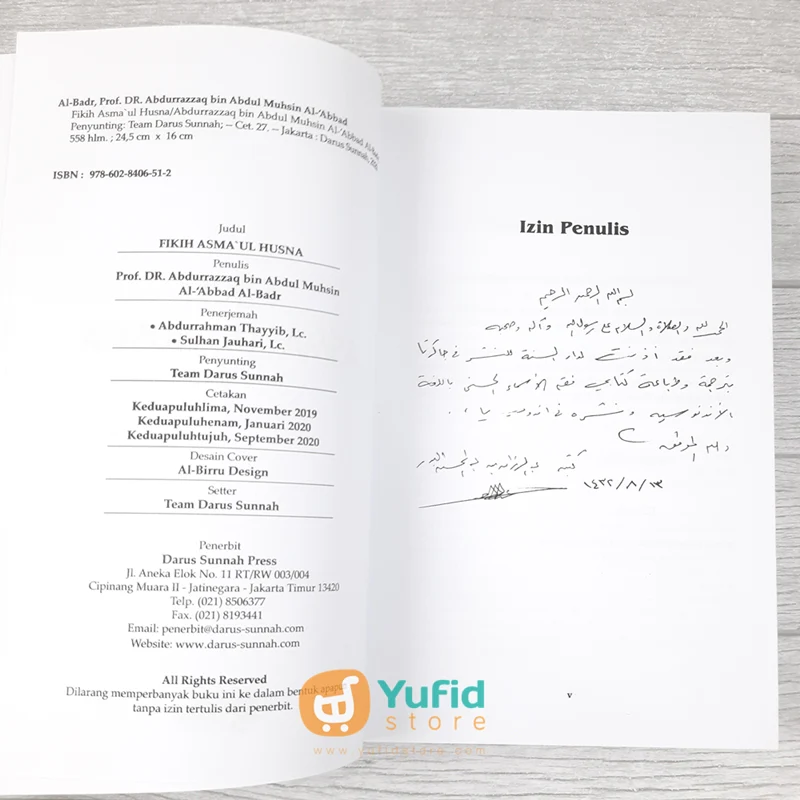 Al-Badr, Prof. DR. Abdurrazzaq bin Abdul Muhsin Al-'Abbad
Fikih Asma`ul Husna/Abdurrazzaq bin Abdul Muhsin Al-'Abbad Al-Badr
Penyunting: Team Darus Sunnah; — Cet. 27, — Jakarta : Darus Sunnah,
558 hlm. ; 24,5 cm x 16 cm
ISBN : 978-602-8406-51-2
Judul
FIKIH ASMA`UL HUSNA
Penulis
Prof. DR. Abdurrazzaq bin Abdul Muhsin
Al-'Abbad Al-Badr
Penerjemah
• Abdurrahman Thayyib, Lc.
• Sulhan Jauhari, Lc.
Penyunting
Team Darus Sunnah
Cetakan
Keduapuluhlima, November 2019
Keduapuluhenam, Januari 2020
Keduapuluhtujuh, September 2020
Desain Cover
Al-Birru Design
Setter
Team Darus Sunnah
Penerbit
Darus Sunnah Press
Jl. Aneka Elok No. 11 RT/RW 003/004
Cipinang Muara II - Jatinegara - Jakarta Timur 13420
Telp. (021) 8506377
Fax. (021) 8193441
Email: penerbit@darus-sunnah.com
Website: www.darus-sunnah.com
All Rights Reserved
Dilarang memperbanyak buku ini ke dalam bentuk apapun
tanpa izin tertulis dari penerbit.
Izin Penulis
بسم الله الرحمن الرحيم
الحمد لله والصلاة والسلام على رسول الله وآله وصحبه
وبعد فقد أذنت لدار السنة للنشر في جاكرتا
بترجمة وطباعة كتابي فقه الأسماء الحسنى باللغة
الأندونوسية ونشره في أندونوسيا
والله الموفق
كتبه عبد الرزاق بن عبد المحسن البدر
١٤٣٢/٨/١٣
v
Yufid
store
www.yufidstore.com